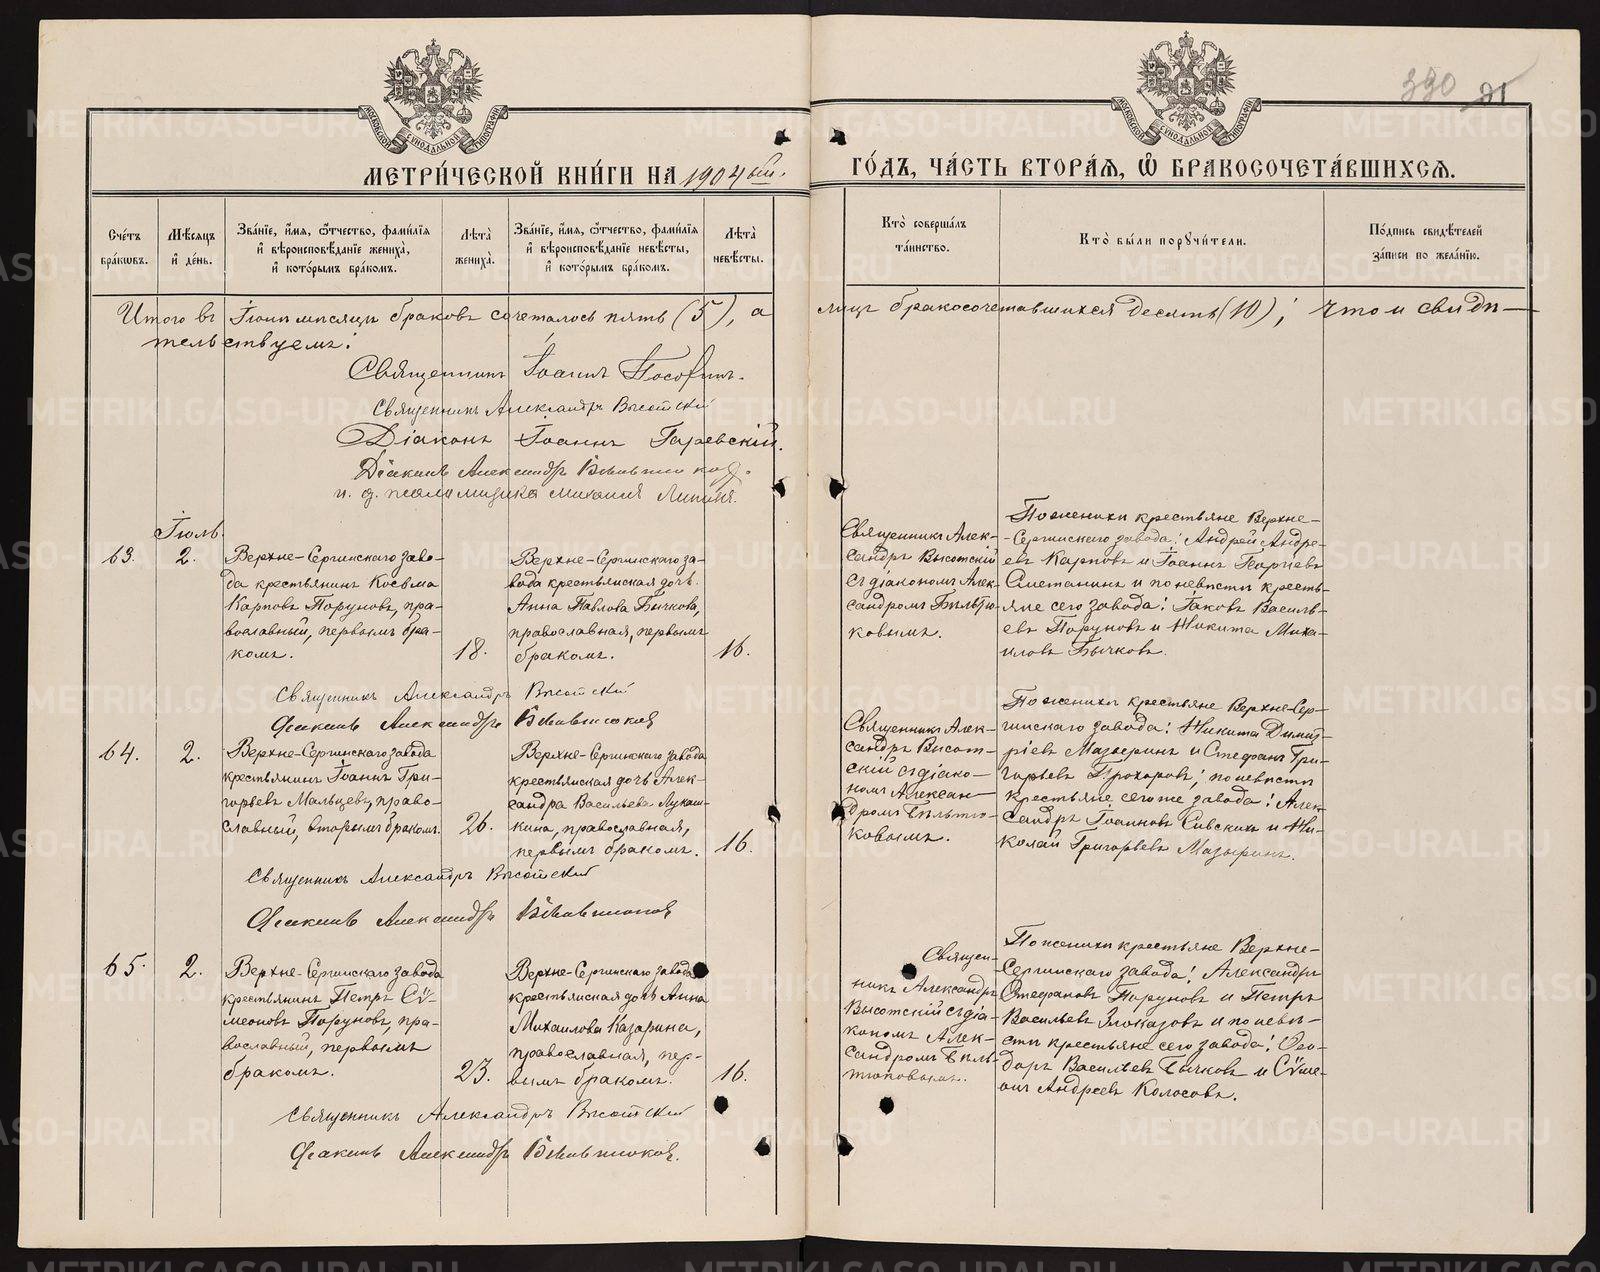 МЕТРИ́ЧЕСКОЙ КНИ́ГИ НА 1904 ый.
ГО́ДЪ, ЧА́СТЬ ВТОРА́Я, Ѡ БРАКОСОЧЕТА́ВШИХСЯ.
Сче́тъ бра́кωвъ.
Мѣ́сяцъ и де́нь.
Зва́нїе, и́мя, ѻ́тчество, фами́лїя и вѣроисповѣ́данїе жениха̀, и кото́рымъ бра́комъ.
Лѣ́та жениха̀.
Зва́нїе, и́мя, ѻ́тчество, фами́лїя и вѣроисповѣ́данїе невѣ́сты, и кото́рымъ бра́комъ.
Лѣ́та невѣ́сты.
Кто̀ соверша́лъ та́инство.
Кто̀ бы́ли поручи́тели.
По́дпись свидѣ́телей за́писи по жела́нїю.
Итого въ Іюнѣ мѣсяцѣ браковъ сочеталось пять (5), а
лицъ бракосочетавшихся десять (10); что и свидѣ-
тельствуемъ:
Священникъ Іоаннъ
Священникъ Александръ Высотскій
Діаконъ Іоаннъ Гаревскій.
Діаконъ Александръ
и. д. псаломщика Михаилъ
Іюль.
63.
2.
Верхне-Сергинскаго заво-
да крестьянинъ Косьма
Карповъ Поруновъ, пра-
вославный, первымъ бра-
комъ.
18.
Верхне-Сергинскаго за-
вода крестьянская дочь
Анна Павлова Бычкова,
православная, первымъ
бракомъ.
16.
Священникъ Алек-
сандръ Высотскій
съ діакономъ Алек-
сандромъ Бѣльтю-
ковымъ.
По женихѣ крестьяне Верхне-
-Сергинскаго завода: Андрей Андре-
евъ Карповъ и Іоаннъ Георгіевъ
Сметанинъ и по невѣстѣ кресть-
яне сего завода: Іаковъ Василь-
евъ Поруновъ и Никита Миха-
иловъ Бычковъ.
Священникъ Александръ Высотскій
Діаконъ Александръ Бѣльтюковъ
64.
2.
Верхне-Сергинскаго завода
крестьянинъ Іоаннъ Гри-
горьевъ Мальцевъ, право-
славный, вторымъ бракомъ.
26.
Верхне-Сергинскаго завода
крестьянская дочь Алек-
сандра Васильева Лукаш-
кина, православная,
первымъ бракомъ.
16.
Священникъ Алек-
сандръ Высот-
скій съ діако-
номъ Алексан-
дромъ Бѣльтю-
ковымъ.
По женихѣ крестьяне Верхне-Сер-
гинскаго завода: Никита Димит-
ріевъ Мазыринъ и Стефанъ Гри-
горьевъ Прохоровъ; по невѣстѣ
крестьяне сего же завода: Алек-
сандръ Іоанновъ Сивскихъ и Ни-
колай Григорьевъ Мазыринъ.
Священникъ Александръ Высотскій
Діаконъ Александръ Бѣльтюковъ
65.
2.
Верхне-Сергинскаго завода
крестьянинъ Петръ Сѵ-
меоновъ Поруновъ, пра-
вославный, первымъ
бракомъ.
23.
Верхне-Сергинскаго завода
крестьянская дочь Анна
Михаилова Казарина,
православная, пер-
вымъ бракомъ.
16.
Священ-
никъ Александръ
Высотскій съ діа-
кономъ Алек-
сандромъ Бѣль-
тюковымъ.
По женихѣ крестьяне Верхне-
Сергинскаго завода: Александръ
Стефановъ Поруновъ и Петръ
Васильевъ Злоказовъ и по невѣ-
стѣ крестьяне сего завода: Ѳео-
доръ Васильевъ Бычковъ и Сѵме-
онъ Андреевъ Колосовъ.
Священникъ Александръ Высотскій
Діаконъ Александръ Бѣльтюковъ.
METRIKI.GASO-URAL.RU